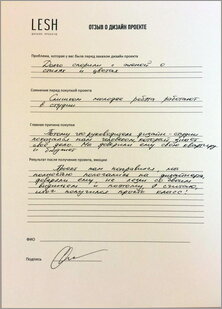 LESH
ОТЗЫВ О ДИЗАЙН ПРОЕКТЕ
Проблема, которая у вас была перед заказом дизайн проекта
Долго спорили с женой о
стиле и цветах
Сомнения перед покупкой
Слишком молодые ребята работают
в студии
Главная причина покупки
Потому что руководитель дизайн-студии
показался нам человеком который знает
своё дело. Мы доверили ему свою квартиру
и бюджет
Результат после получения проекта, эмоции
Проект нам понравился, мы
полностью положились на дизайнера,
доверяли ему, не лезли со своим
видением и поэтому я считаю,
что получился просто класс!
ФИО
Подпись